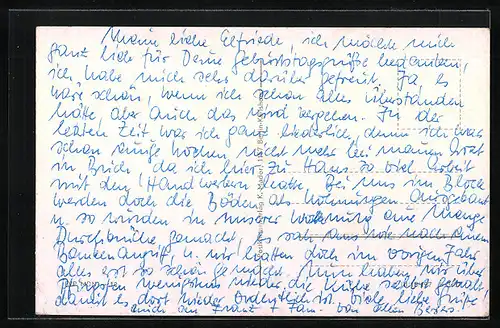 Meine liebe Elfriede, ich möchte mich
ganz lieb für Deine Geburtstagsgrüße bedanken,
ich habe mich sehr darüber gefreut. Ja es
wäre schön, wenn ich schon alles überstanden
hätte, aber auch das wird vergehen. In der
letzten Zeit war ich ganz liederlich, denn ich war
schon einige Wochen nicht mehr bei meinem Arzt
in Brich da ich hier zu Haus so viel Arbeit
mit den Handwerkern hatte. Bei uns im Block
werden doch die Böden als Wohnungen ausgebaut
u. so wurden in unserer Wohnung eine Menge
Durchbrüche gemacht, es sah aus wie nach einem
Bombenangriff, u. wir hatten doch im vorigen Jahr
alles erst so schön gemacht. Nun haben wir über
Ostern wenigstens wieder die Küche selbst gemalt,
damit es dort wieder ordentlich ist. Viele liebe Grüße
auch an Franz + Fam. von allen